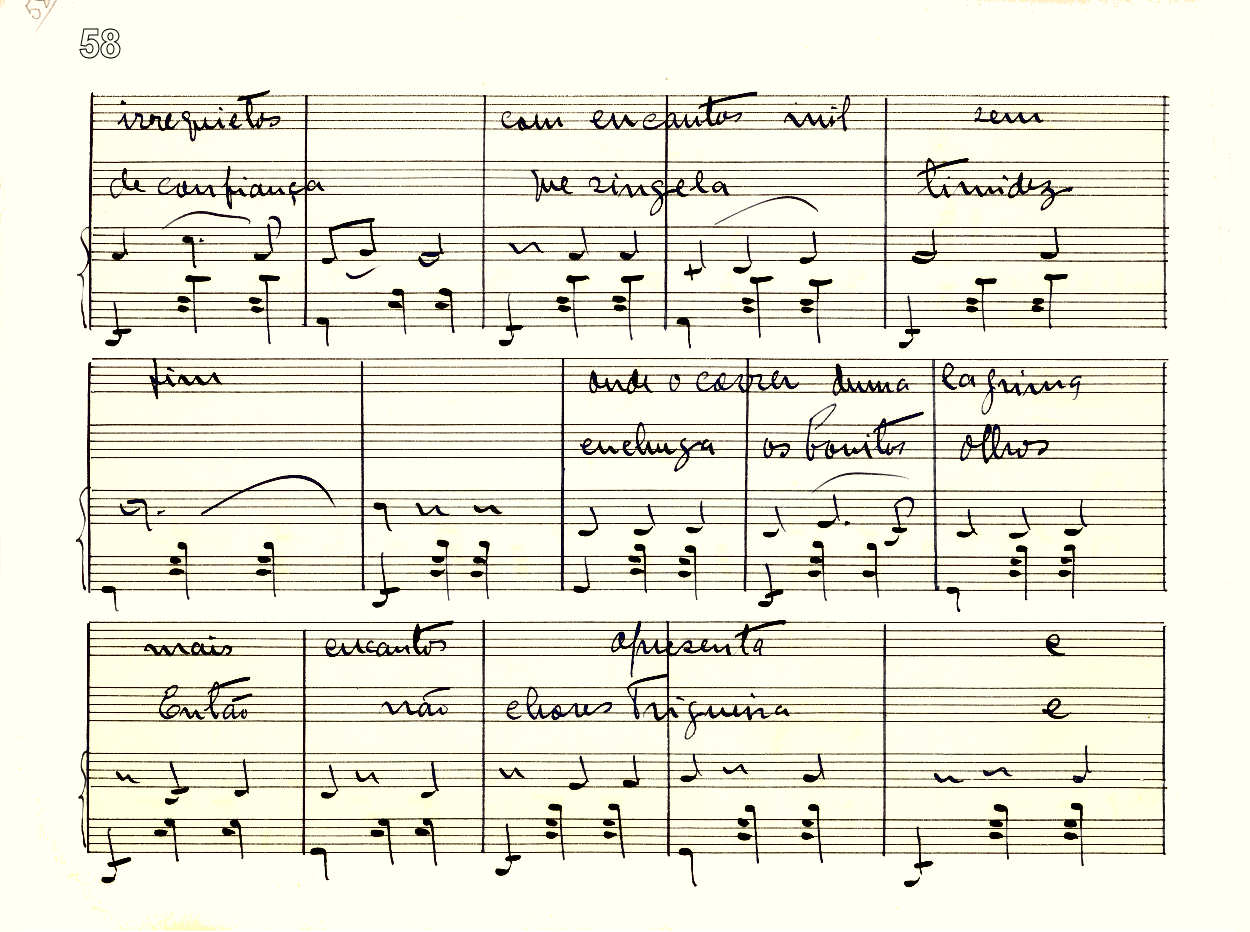 58
irrequietos com encantos mil sem
de confiança que singela timidez
fim onde o correr duma lagrima
enchuga os bonitos olhos
mais encantos apresenta e
Então não chores Trigueira e